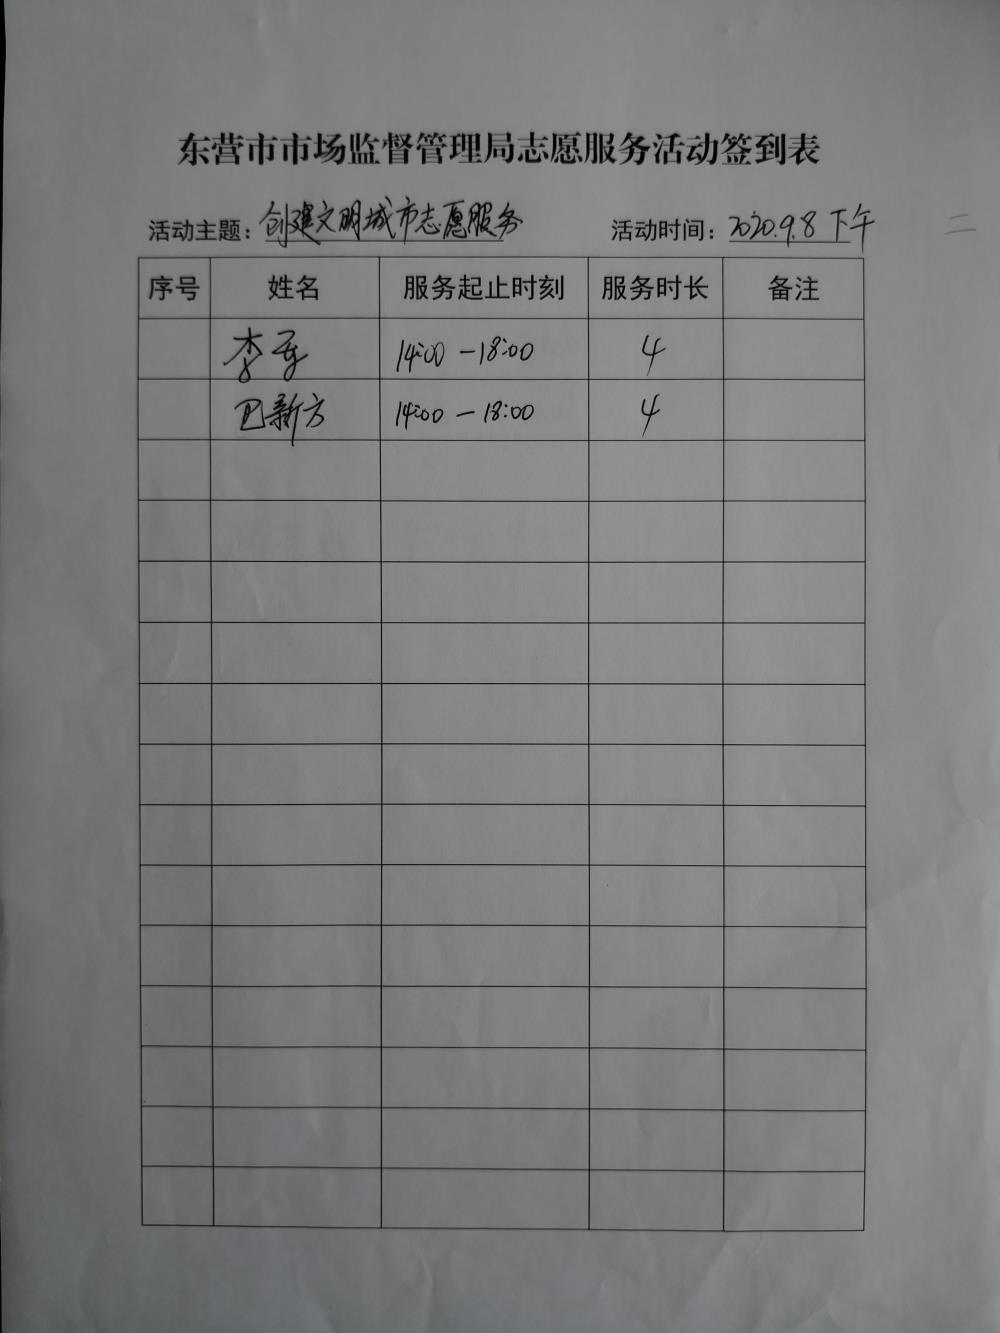 东营市市场监督管理局志愿服务活动签到表
活动主题：创建文明城市志愿服务 活动时间：2020.9.8下午 二
序号 姓名 服务起止时刻 服务时长 备注
李 14:00-18:00 4
巴新方 14:00-18:00 4